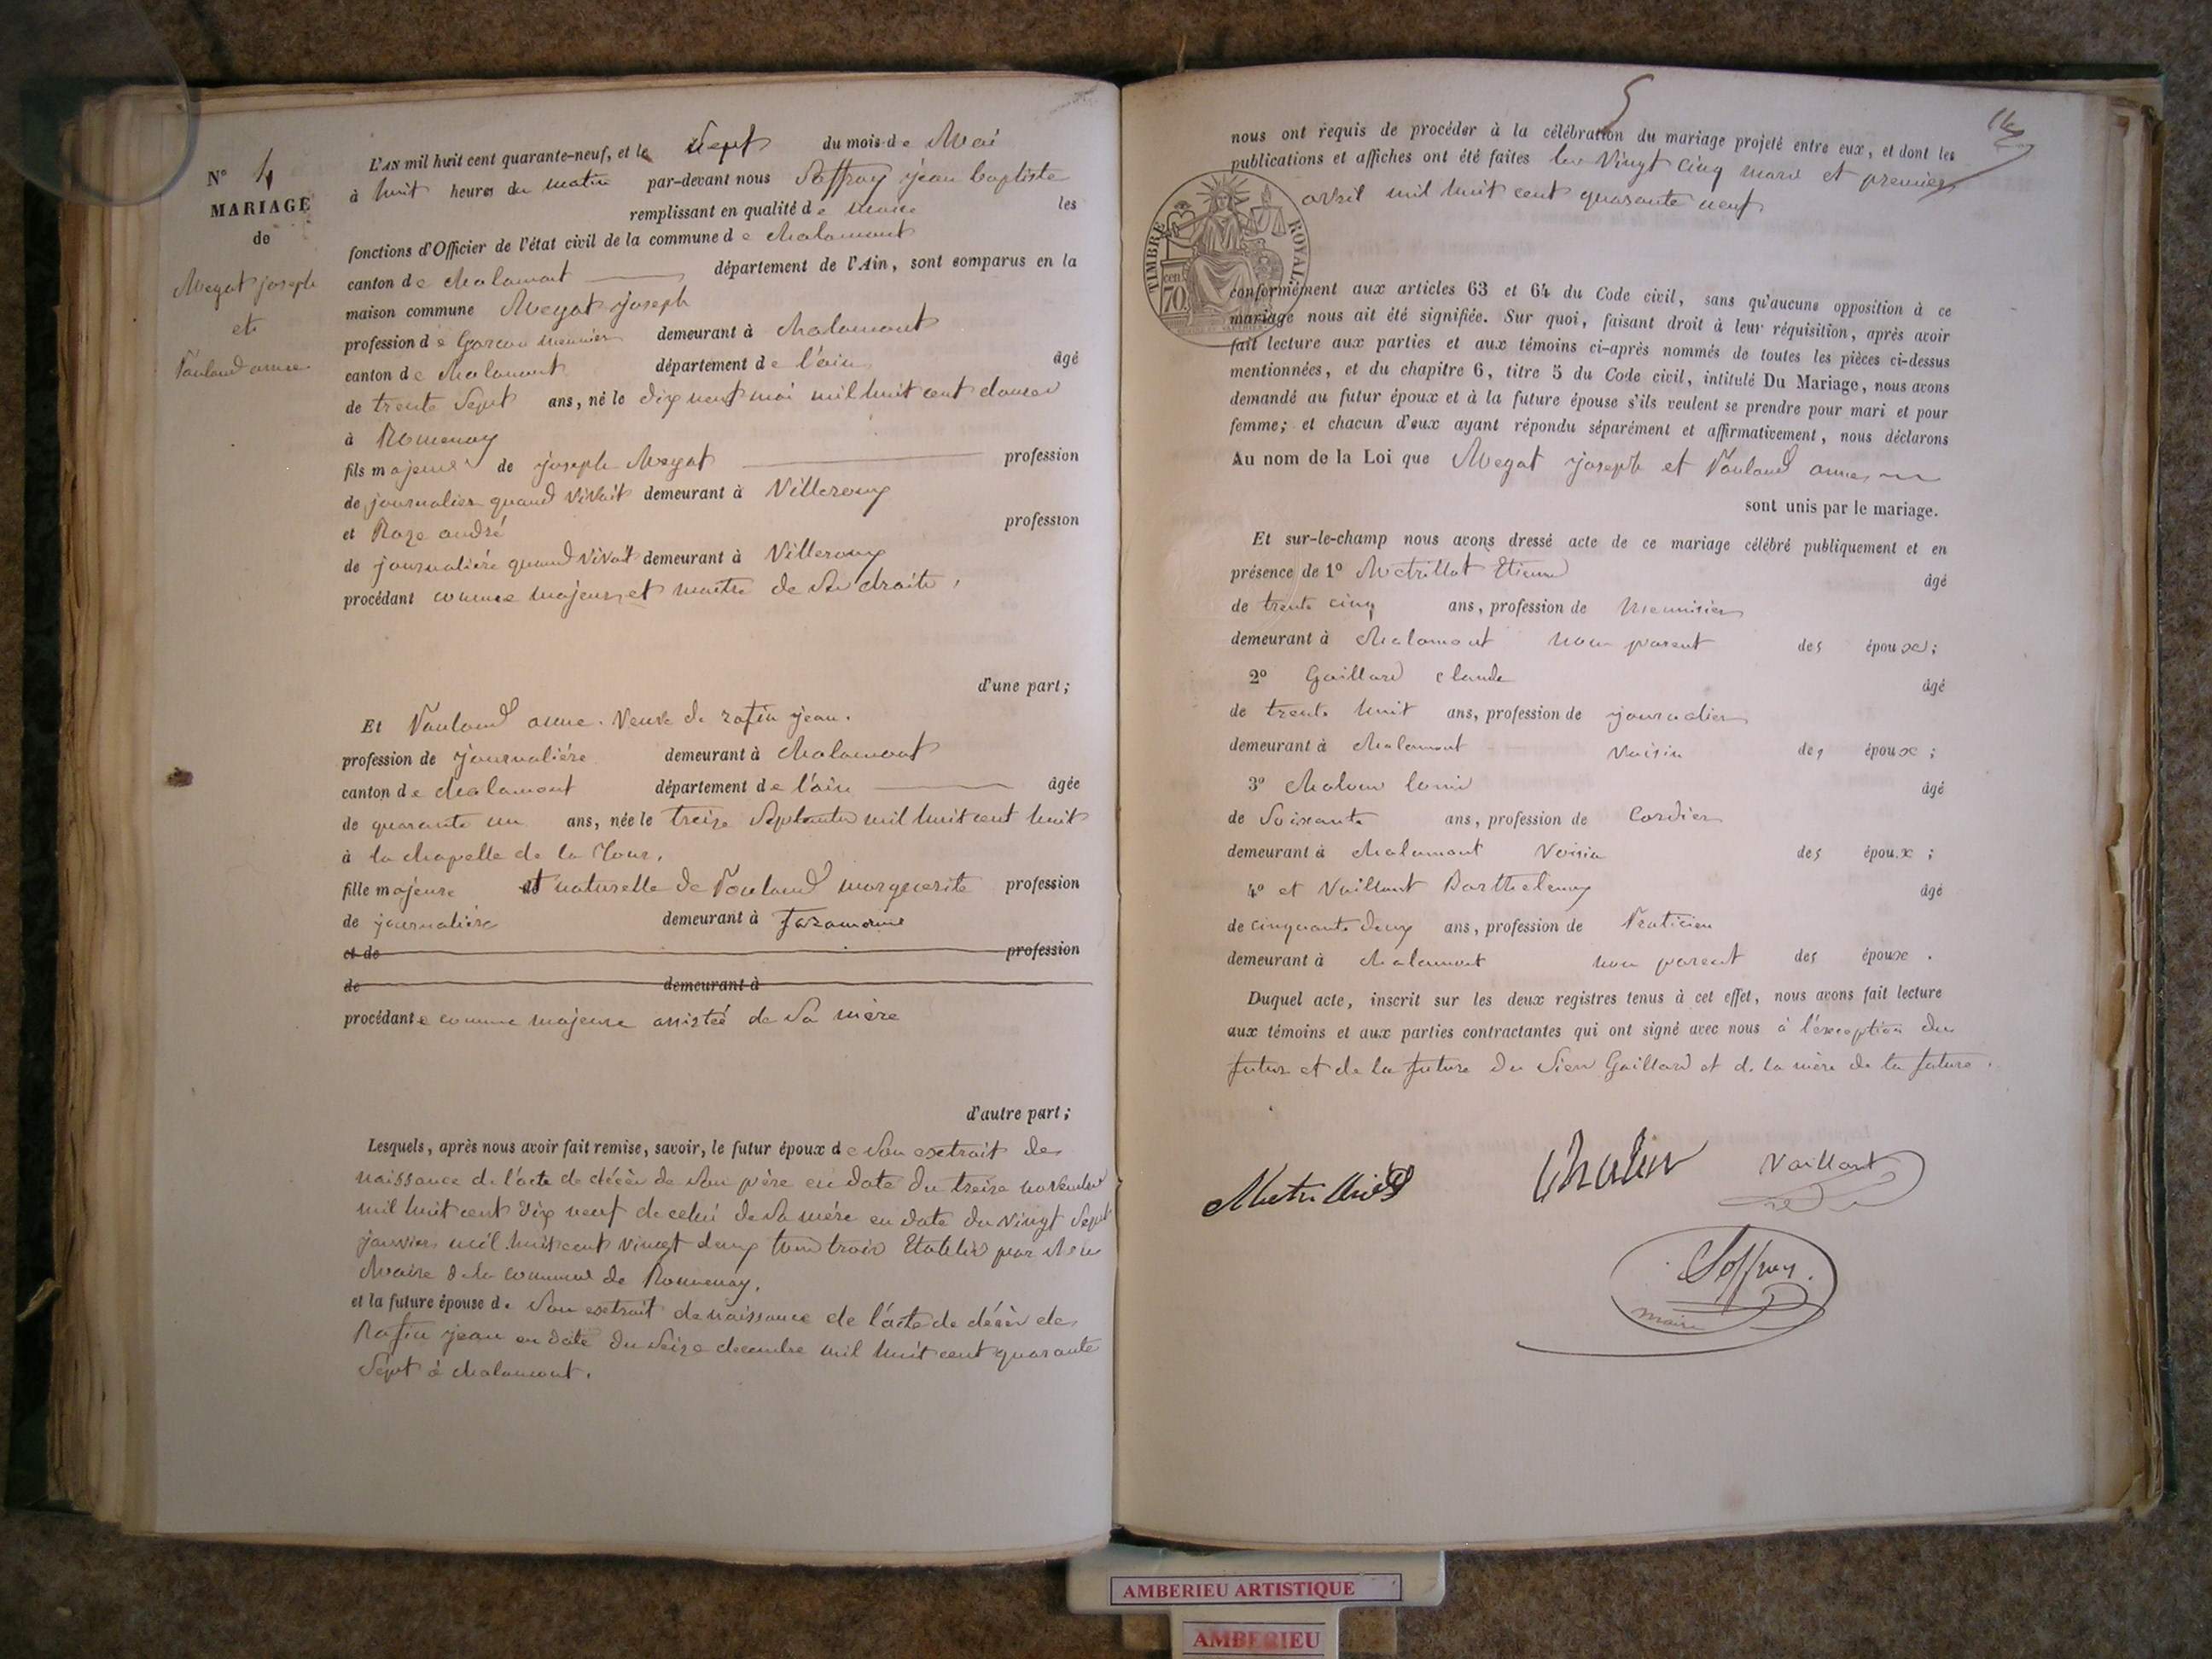 N° 4
MARIAGE
de
Megat joseph
et
Pauland anne
L'AN mil huit cent quarante-neuf, et le sept du mois de Mai
à huit heures du matin par-devant nous Saffray jean baptiste
remplissant en qualité de maire les
fonctions d'Officier de l'état civil de la commune de chalamont
canton de chalamont département de l'Ain, sont comparus en la
maison commune Megat joseph
profession de Garcon meunier demeurant à chalamont
canton de chalamont département de l'ain âgé
de trente sept ans, né le dix neuf mai mil huit cent douze
à Romenay
fils majeur de joseph Megat profession
de journalier quand vivait demeurant à Villeroux
et Roze andré profession
de journaliére quand vivait demeurant à Villeroux
procédant comme majeur et maitre de ses droits,
d'une part;
Et Pauland anne. Veuve de rafin jean.
profession de journaliére demeurant à chalamont
canton de chalamont département de l'ain âgée
de quarante un ans, née le treize septembre mil huit cent huit
à la chapelle de la Tour.
fille majeure et naturelle de Pauland marguerite profession
de journaliére demeurant à
et de profession
de demeurant à
procédante comme majeure assistée de sa mère
d'autre part;
Lesquels, après nous avoir fait remise, savoir, le futur époux de son extrait de
naissance de l'acte de décès de son père en date du treize novembre
mil huit cent dix neuf de celui de sa mère en date du vingt sept
janvier mil huit cent vingt deux tous trois établis par
Maire de la commune de Romenay.
et la future épouse de son extrait de naissance de l'acte de décès de
Rafin jean en date du seize decembre mil huit cent quarante
sept à chalamont.
5
nous ont requis de procéder à la célébration du mariage projeté entre eux, et dont les
publications et affiches ont été faites les vingt cinq mars et premier
avril mil huit cent quarante neuf
TIMBRE ROYAL
70 cen
conformément aux articles 63 et 64 du Code civil, sans qu'aucune opposition à ce
mariage nous ait été signifiée. Sur quoi, faisant droit à leur réquisition, après avoir
fait lecture aux parties et aux témoins ci-après nommés de toutes les pièces ci-dessus
mentionnées, et du chapitre 6, titre 5 du Code civil, intitulé Du Mariage, nous avons
demandé au futur époux et à la future épouse s'ils veulent se prendre pour mari et pour
femme; et chacun d'eux ayant répondu séparément et affirmativement, nous déclarons
Au nom de la Loi que Megat joseph et Pauland anne
sont unis par le mariage.
Et sur-le-champ nous avons dressé acte de ce mariage célébré publiquement et en
présence de 1° Metrillot Etienne âgé
de trente cinq ans, profession de menuisier
demeurant à chalamont non parent des époux;
2° Gaillard claude âgé
de trente huit ans, profession de journalier
demeurant à chalamont Voisin des époux;
3° chaloux louis âgé
de soixante ans, profession de Cordier
demeurant à chalamont Voisin des époux;
4° et Vaillant Barthelemy âgé
de cinquante deux ans, profession de Praticien
demeurant à chalamont non parent des époux.
Duquel acte, inscrit sur les deux registres tenus à cet effet, nous avons fait lecture
aux témoins et aux parties contractantes qui ont signé avec nous à l'exception du
futur et de la future du sieur Gaillard et de la mère de la future.
Vaillant
Soffray
maire
AMBERIEU ARTISTIQUE
AMBERIEU